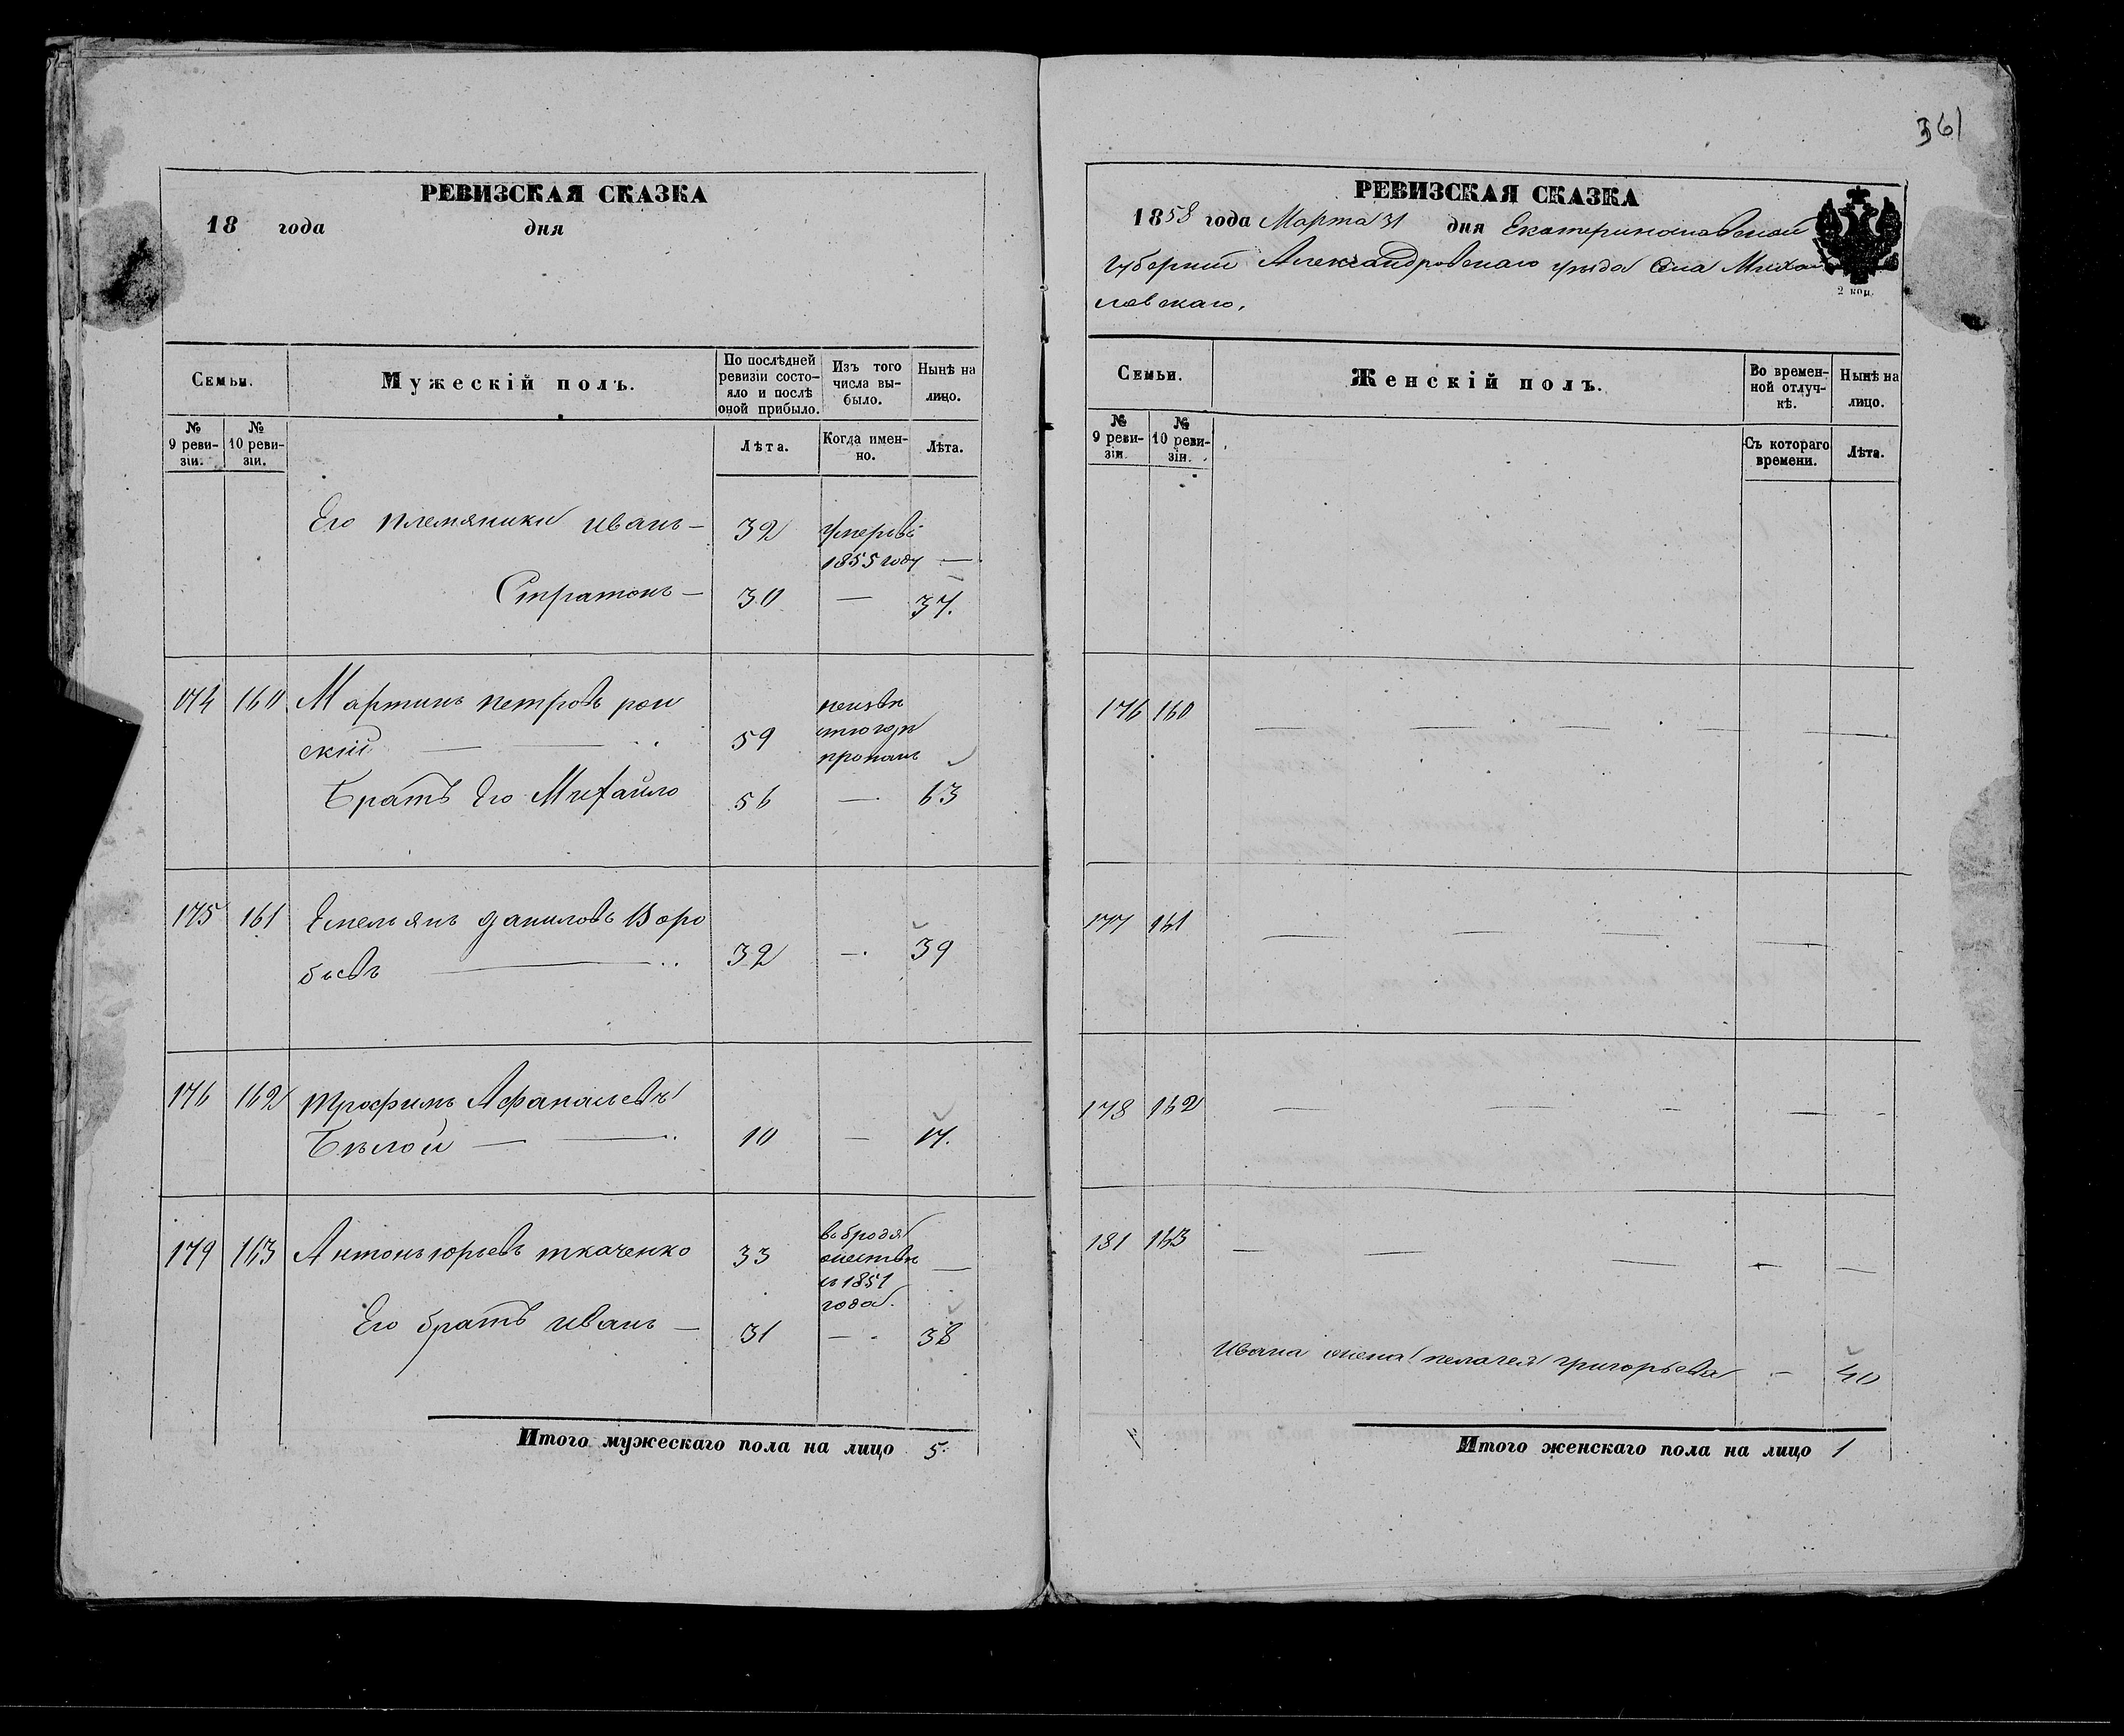 361
РЕВИЗСКАЯ СКАЗКА
18 года дня
Семьи.
Мужескій полъ.
По послѣдней ревизіи состояло и послѣ оной прибыло.
Изъ того числа выбыло.
Нынѣ на лицо.
№ 9 ревизіи.
№ 10 ревизіи.
Лѣта.
Когда именно.
Лѣта.
Его племяники иванъ — 32 умеръ въ
1855 году —
Стратонъ — 30 — 37.
160 Мартинъ петровъ
скій 59
пропалъ
Братъ Его Михайло 56 — 63
175 161 Емельянъ даниловъ Воро
бьевъ 32 — 39
176 162 трофимъ Афанасьевъ
Бѣлой — 10 — 17.
179 163 Антонъ юрьевъ ткаченко 33 въ бродя
—
съ 1851
года.
Его братъ иванъ — 31 — 38
Итого мужескаго пола на лицо 5.
РЕВИЗСКАЯ СКАЗКА
1858 года Марта 31 дня Екатеринославской
губерніи Александровскаго уѣзда Села Михай
ловскаго.
2 коп.
Семьи.
Женскій полъ.
Во временной отлучкѣ.
Нынѣ на лицо.
№ 9 ревизіи.
№ 10 ревизіи.
Съ котораго времени.
Лѣта.
176 160 — — — — —
177 161 — — — —
178 162 — — — — -
181 163 — — — — —
Ивана жена пелагея григорьева — 40
Итого женскаго пола на лицо 1